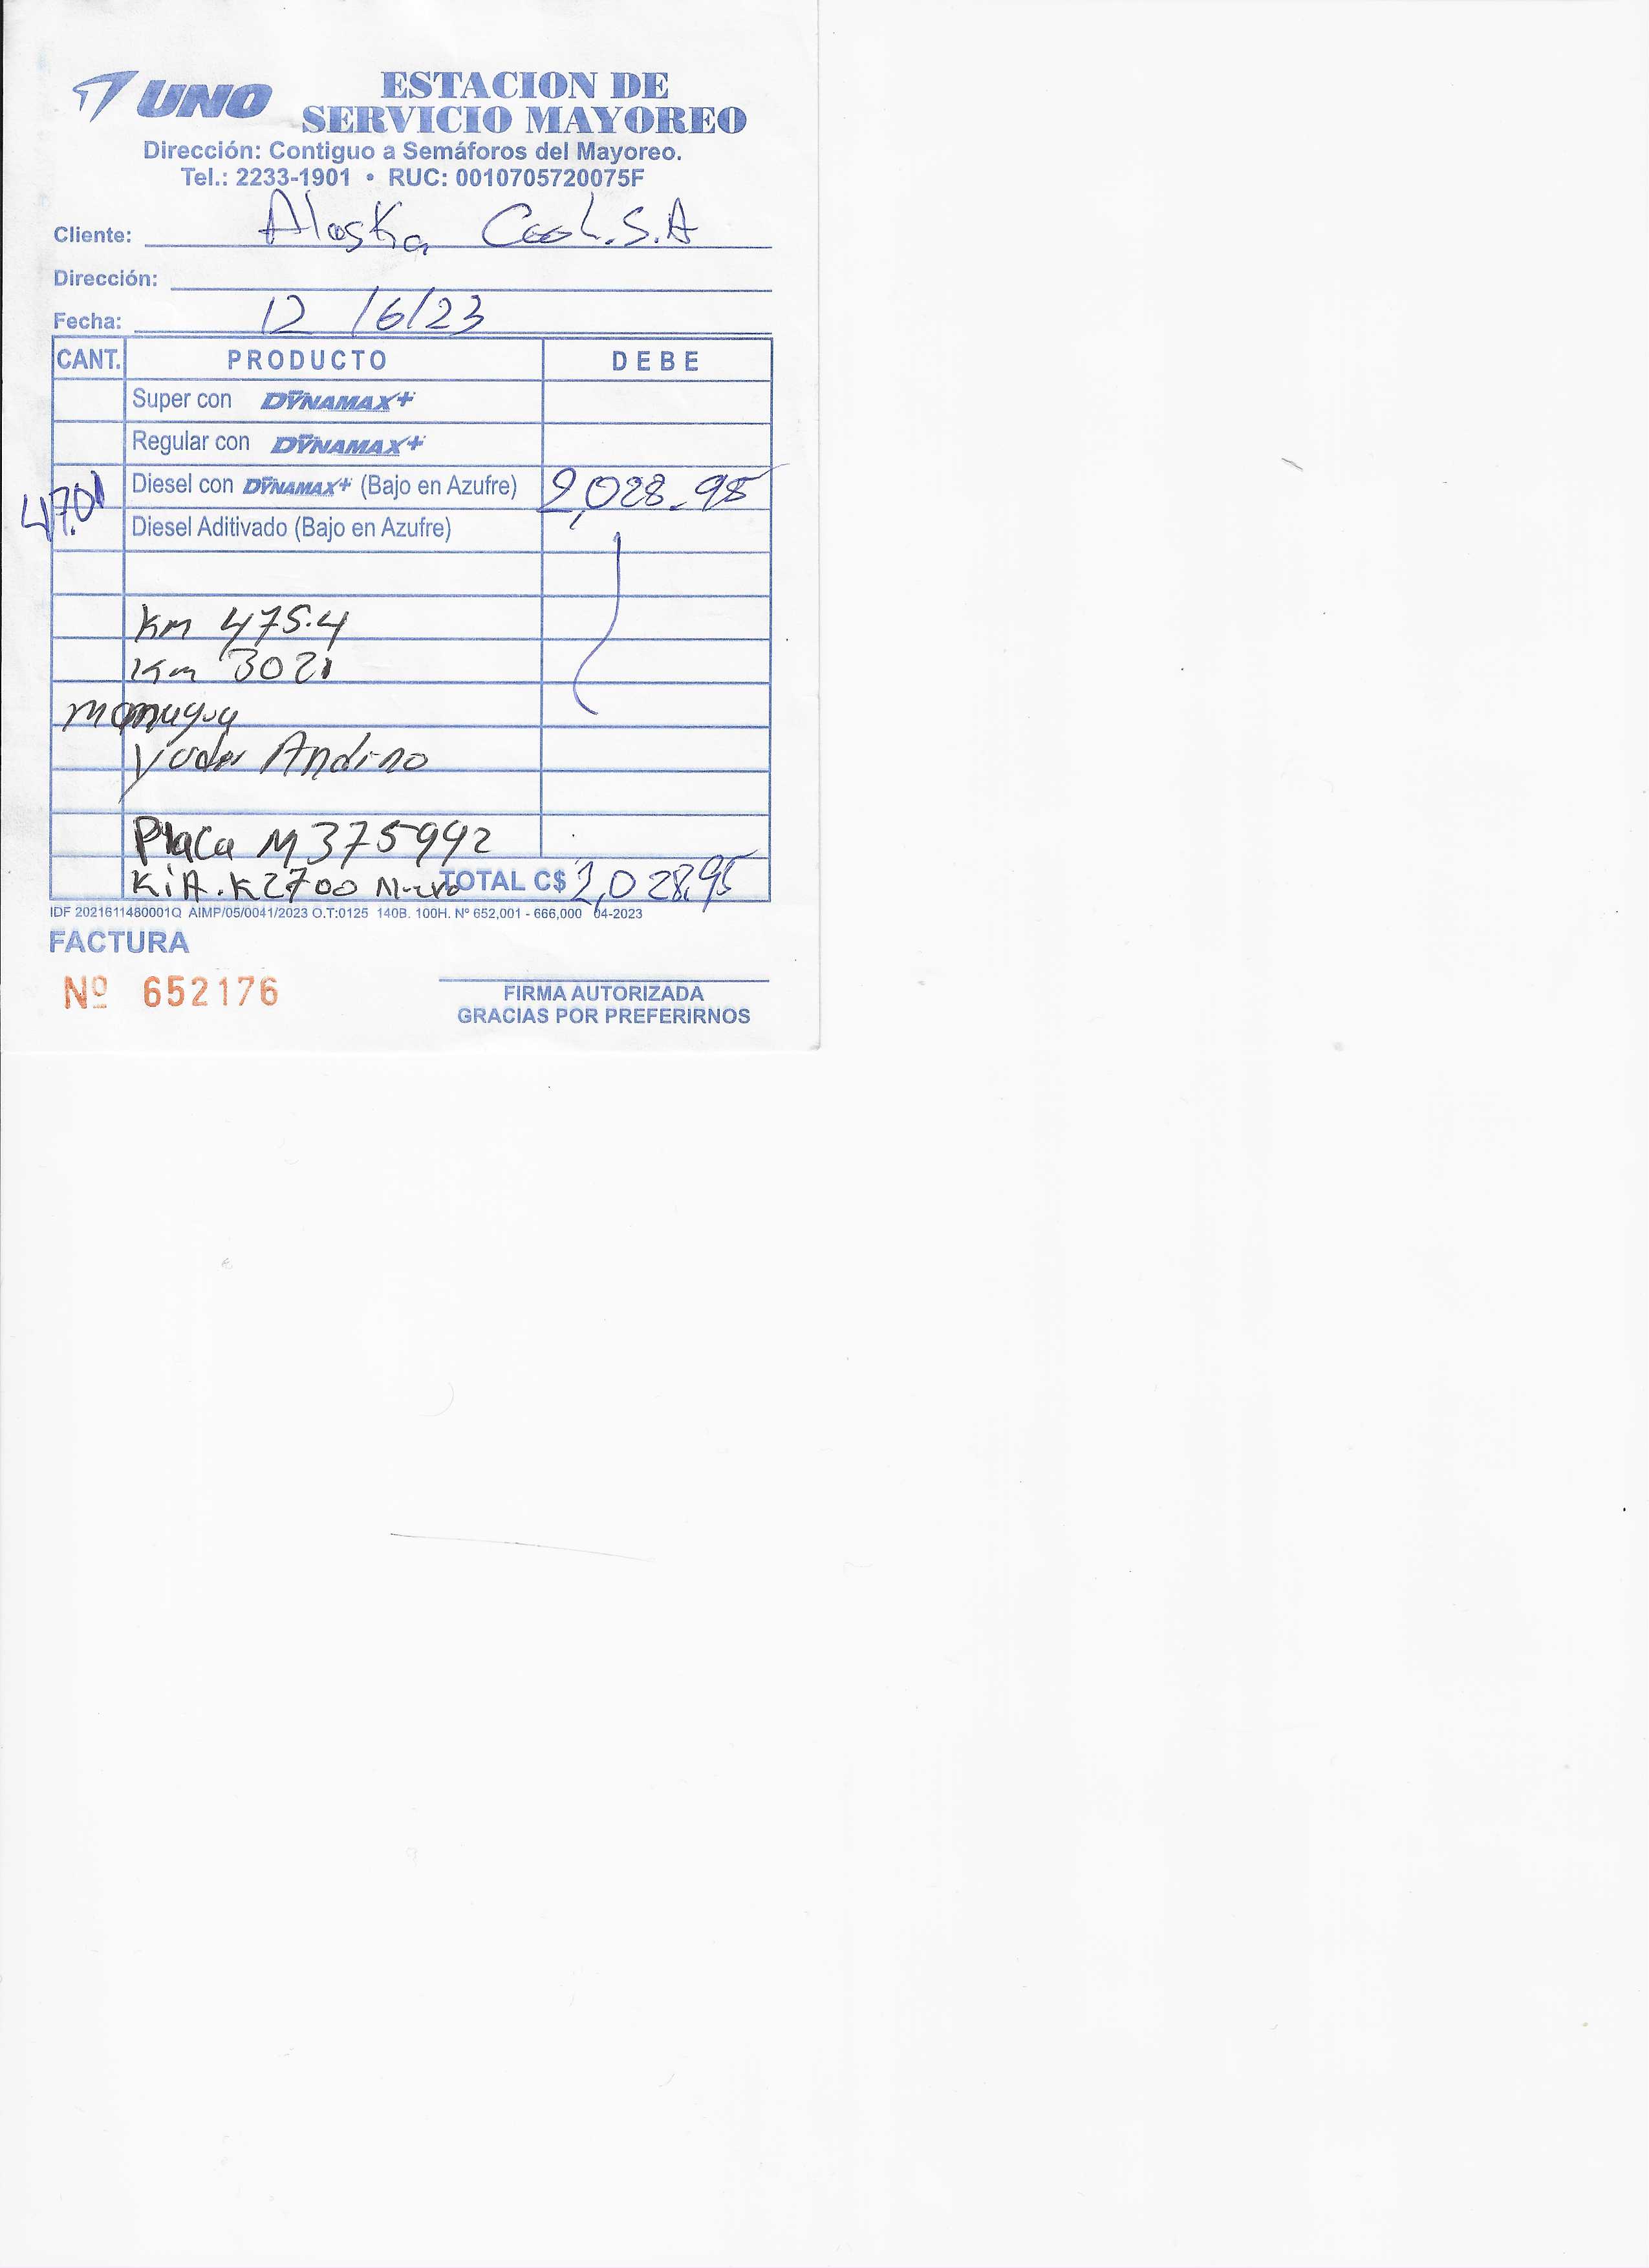 UNO ESTACION DE
SERVICIO MAYOREO
Dirección: Contiguo a Semáforos del Mayoreo.
Tel.: 2233-1901 • RUC: 0010705720075F
Cliente: Alaska Cool.S.A
Dirección:
Fecha: 12/6/23
CANT. PRODUCTO DEBE
Super con DYNAMAX+
Regular con DYNAMAX+
Diesel con DYNAMAX+ (Bajo en Azufre) 2,028.95
47.01 Diesel Aditivado (Bajo en Azufre)
Km 475.4
Km 3021
Managua
Andino
Placa M375992
KiA.K2700 TOTAL C$ 2,028.95
IDF 2021611480001Q AIMP/05/0041/2023 O.T:0125 140B. 100H. Nº 652,001 - 666,000 04-2023
FACTURA
Nº 652176
FIRMA AUTORIZADA
GRACIAS POR PREFERIRNOS